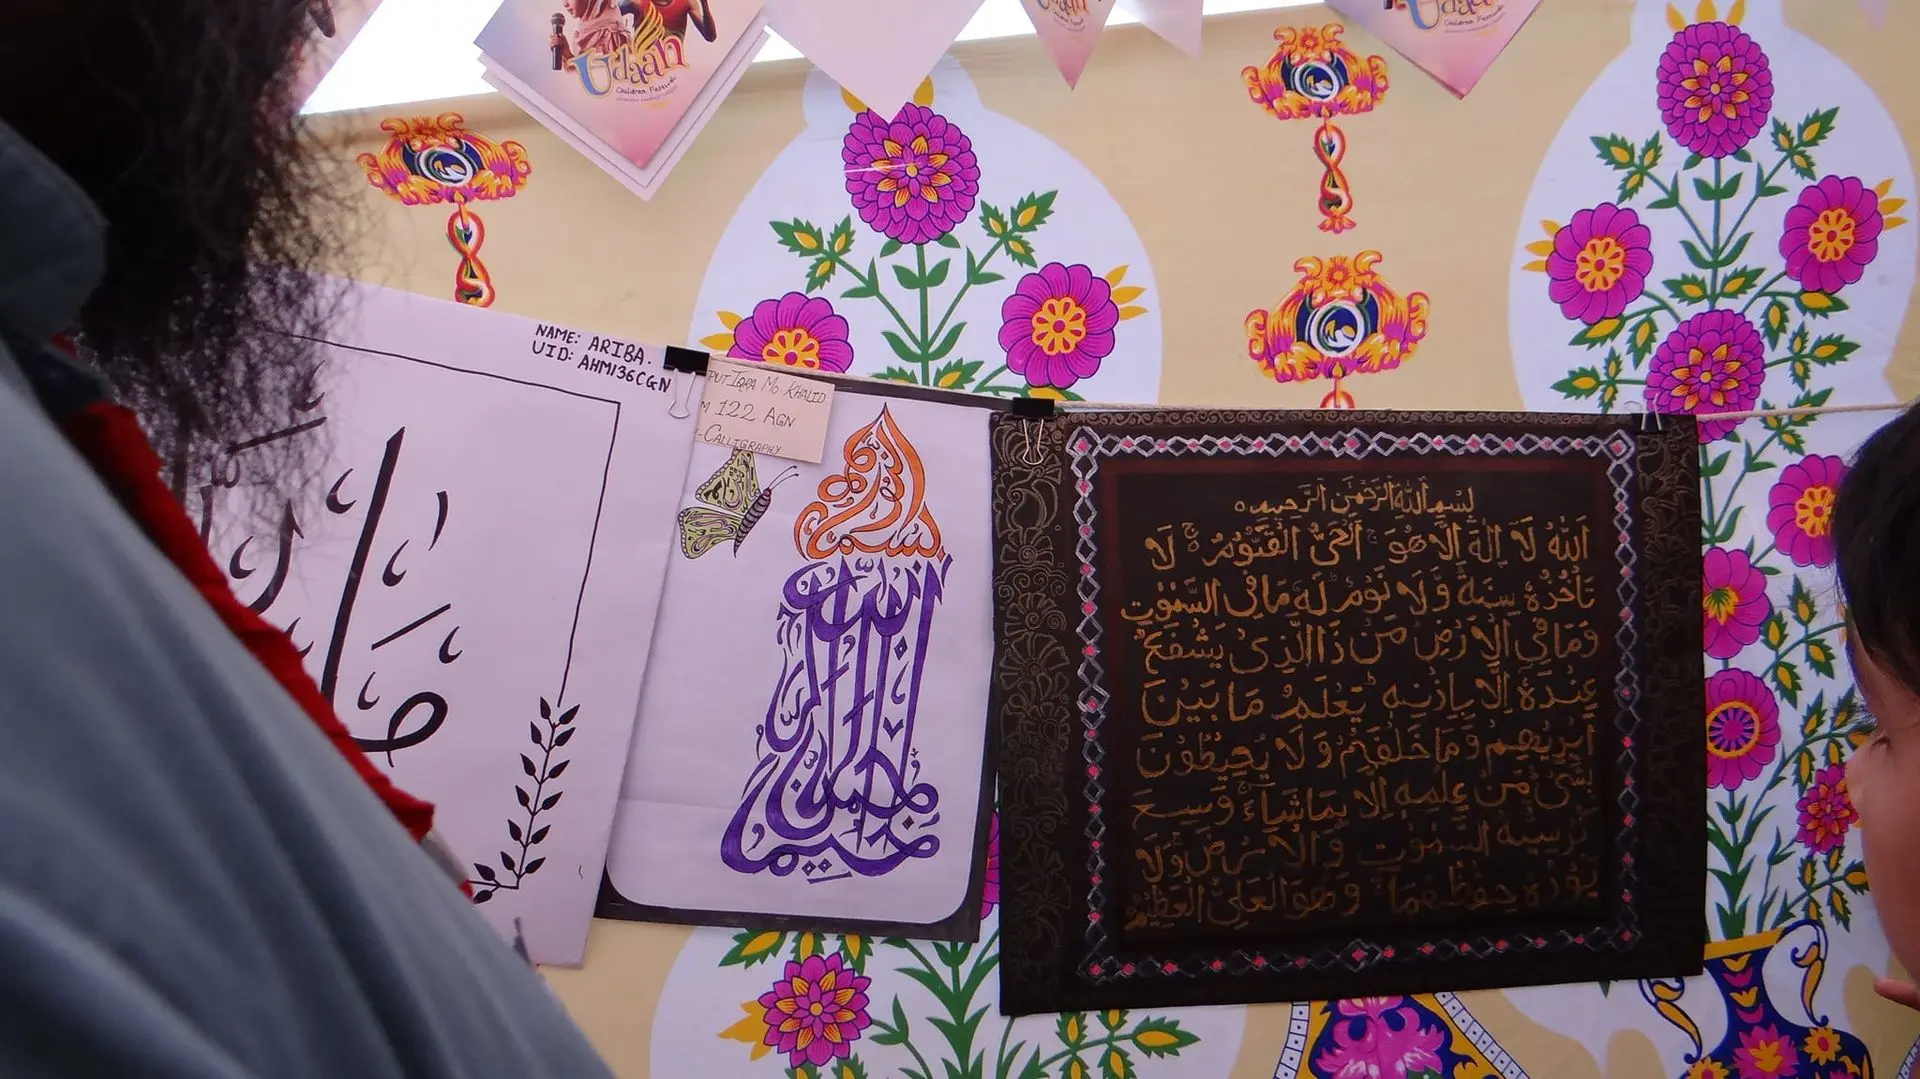 Udaan
Children Festival
Udaan
Children Festival
Udaan
Children Festival
NAME: ARIBA.
UID: AHM136CGN
IQRA MO KHALID
122 AGN
-CALLIGRAPHY
بسم الله الرحمن الرحيم
بِسْمِ اللهِ الرَّحْمٰنِ الرَّحِيْمِ
اَللهُ لَا اِلٰهَ اِلَّا هُوَ اَلْحَيُّ الْقَيُّوْمُ لَا
تَاْخُذُهٗ سِنَةٌ وَّلَا نَوْمٌ لَهٗ مَا فِى السَّمٰوٰتِ
وَمَا فِى الْاَرْضِ مَنْ ذَا الَّذِىْ يَشْفَعُ
عِنْدَهٗ اِلَّا بِاِذْنِهٖ يَعْلَمُ مَا بَيْنَ
اَيْدِيْهِمْ وَمَا خَلْفَهُمْ وَلَا يُحِيْطُوْنَ
بِشَىْءٍ مِّنْ عِلْمِهٖ اِلَّا بِمَا شَآءَ وَسِعَ
كُرْسِيُّهُ السَّمٰوٰتِ وَالْاَرْضَ وَلَا
يَئُوْدُهٗ حِفْظُهُمَا وَهُوَ الْعَلِىُّ الْعَظِيْمُ